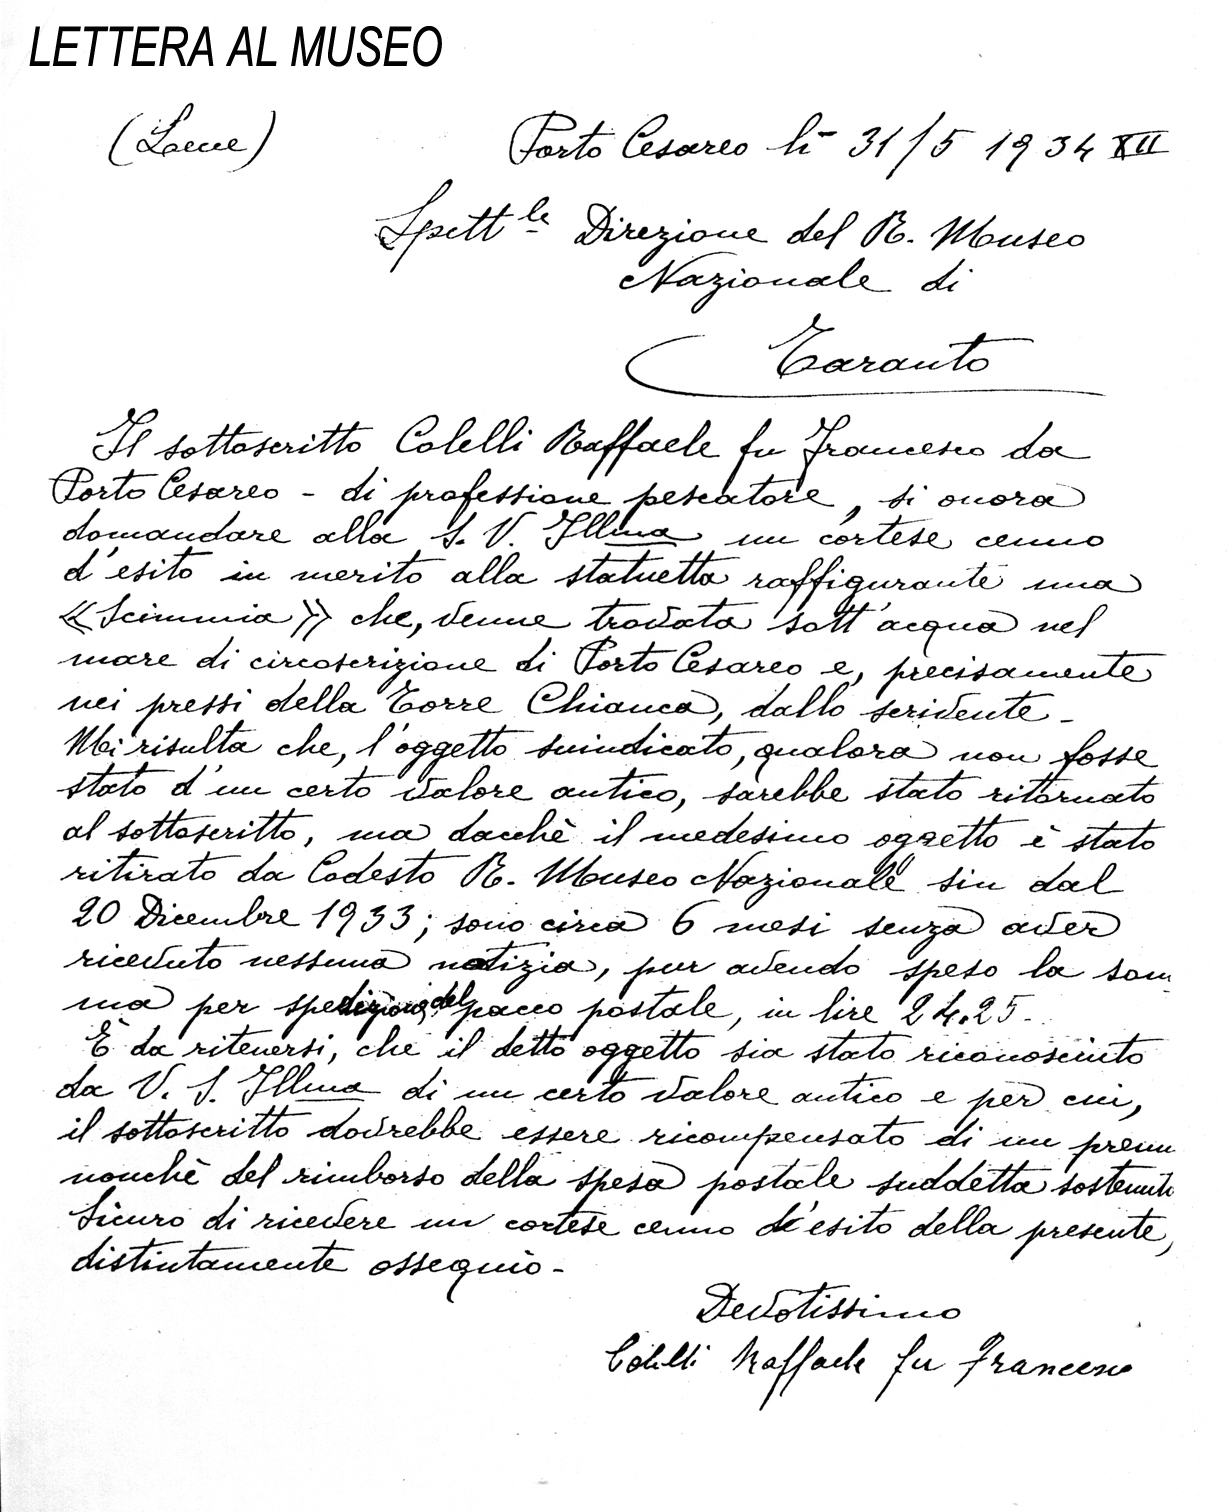 LETTERA AL MUSEO
(Lecce) Porto Cesareo lì 31/5 1934 XII
Spett.le Direzione del R. Museo
Nazionale di
Taranto
Il sottoscritto Colelli Raffaele fu Francesco da
Porto Cesareo - di professione pescatore, si onora
domandare alla S. V. Illma un cortese cenno
d'esito in merito alla statuetta raffigurante una
«Scimmia» che, venne trovata sott'acqua nel
mare di circoscrizione di Porto Cesareo e, precisamente
nei pressi della Torre Chianca, dallo scrivente -
Mi risulta che, l'oggetto suindicato, qualora non fosse
stato d'un certo valore antico, sarebbe stato ritornato
al sottoscritto, ma dacchè il medesimo oggetto è stato
ritirato da Codesto R. Museo Nazionale sin dal
20 Dicembre 1933; sono circa 6 mesi senza aver
ricevuto nessuna notizia, pur avendo speso la som
ma per spedizione del pacco postale, in lire 24.25.
È da ritenersi, che il detto oggetto sia stato riconosciuto
da V. S. Illma di un certo valore antico e per cui,
il sottoscritto dovrebbe essere ricompensato di un premi
nonchè del rimborso della spesa postale suddetta sostenuta
Sicuro di ricevere un cortese cenno d'esito della presente,
distintamente ossequio -
Devotissimo
Colelli Raffaele fu Francesco